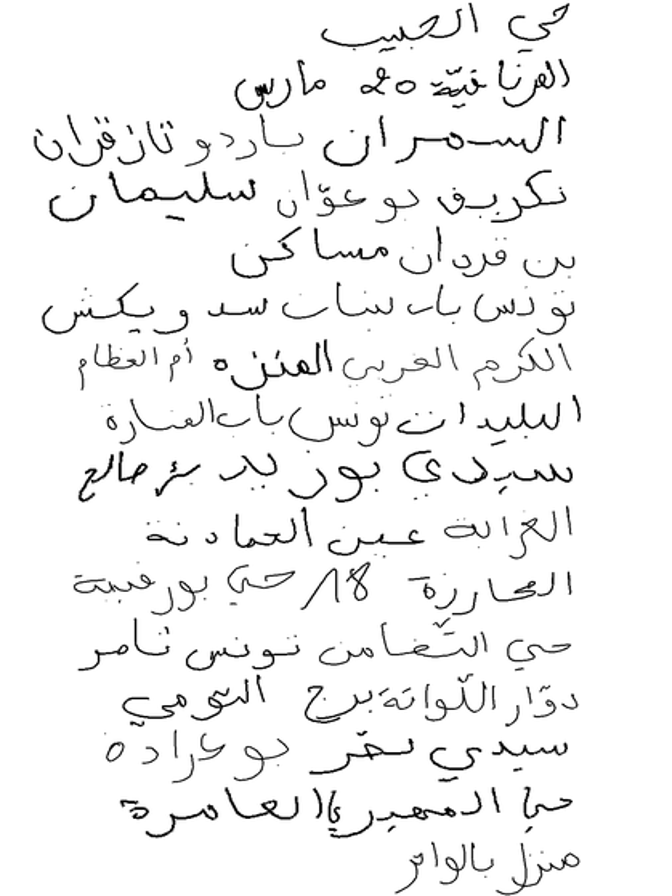 حي الحبيب
الفرنانية 20 مارس
السمران باردو تازقران
تكريف بو عوّان سليمان
بن قردان مساكن
تونس باب بنات سد ويكش
الكرم الغربي المنزه أم العظام
البليدات تونس باب المنارة
سيدي بوزيد بئر صالح
الغرابة عين الحمادنة
المحارزة 18 حي بورقيبة
حي التّضامن تونس تامر
دوّار اللّواتة برج التومي
سيدي نصر بو عرادة
حي المهيري العامرة
منزل